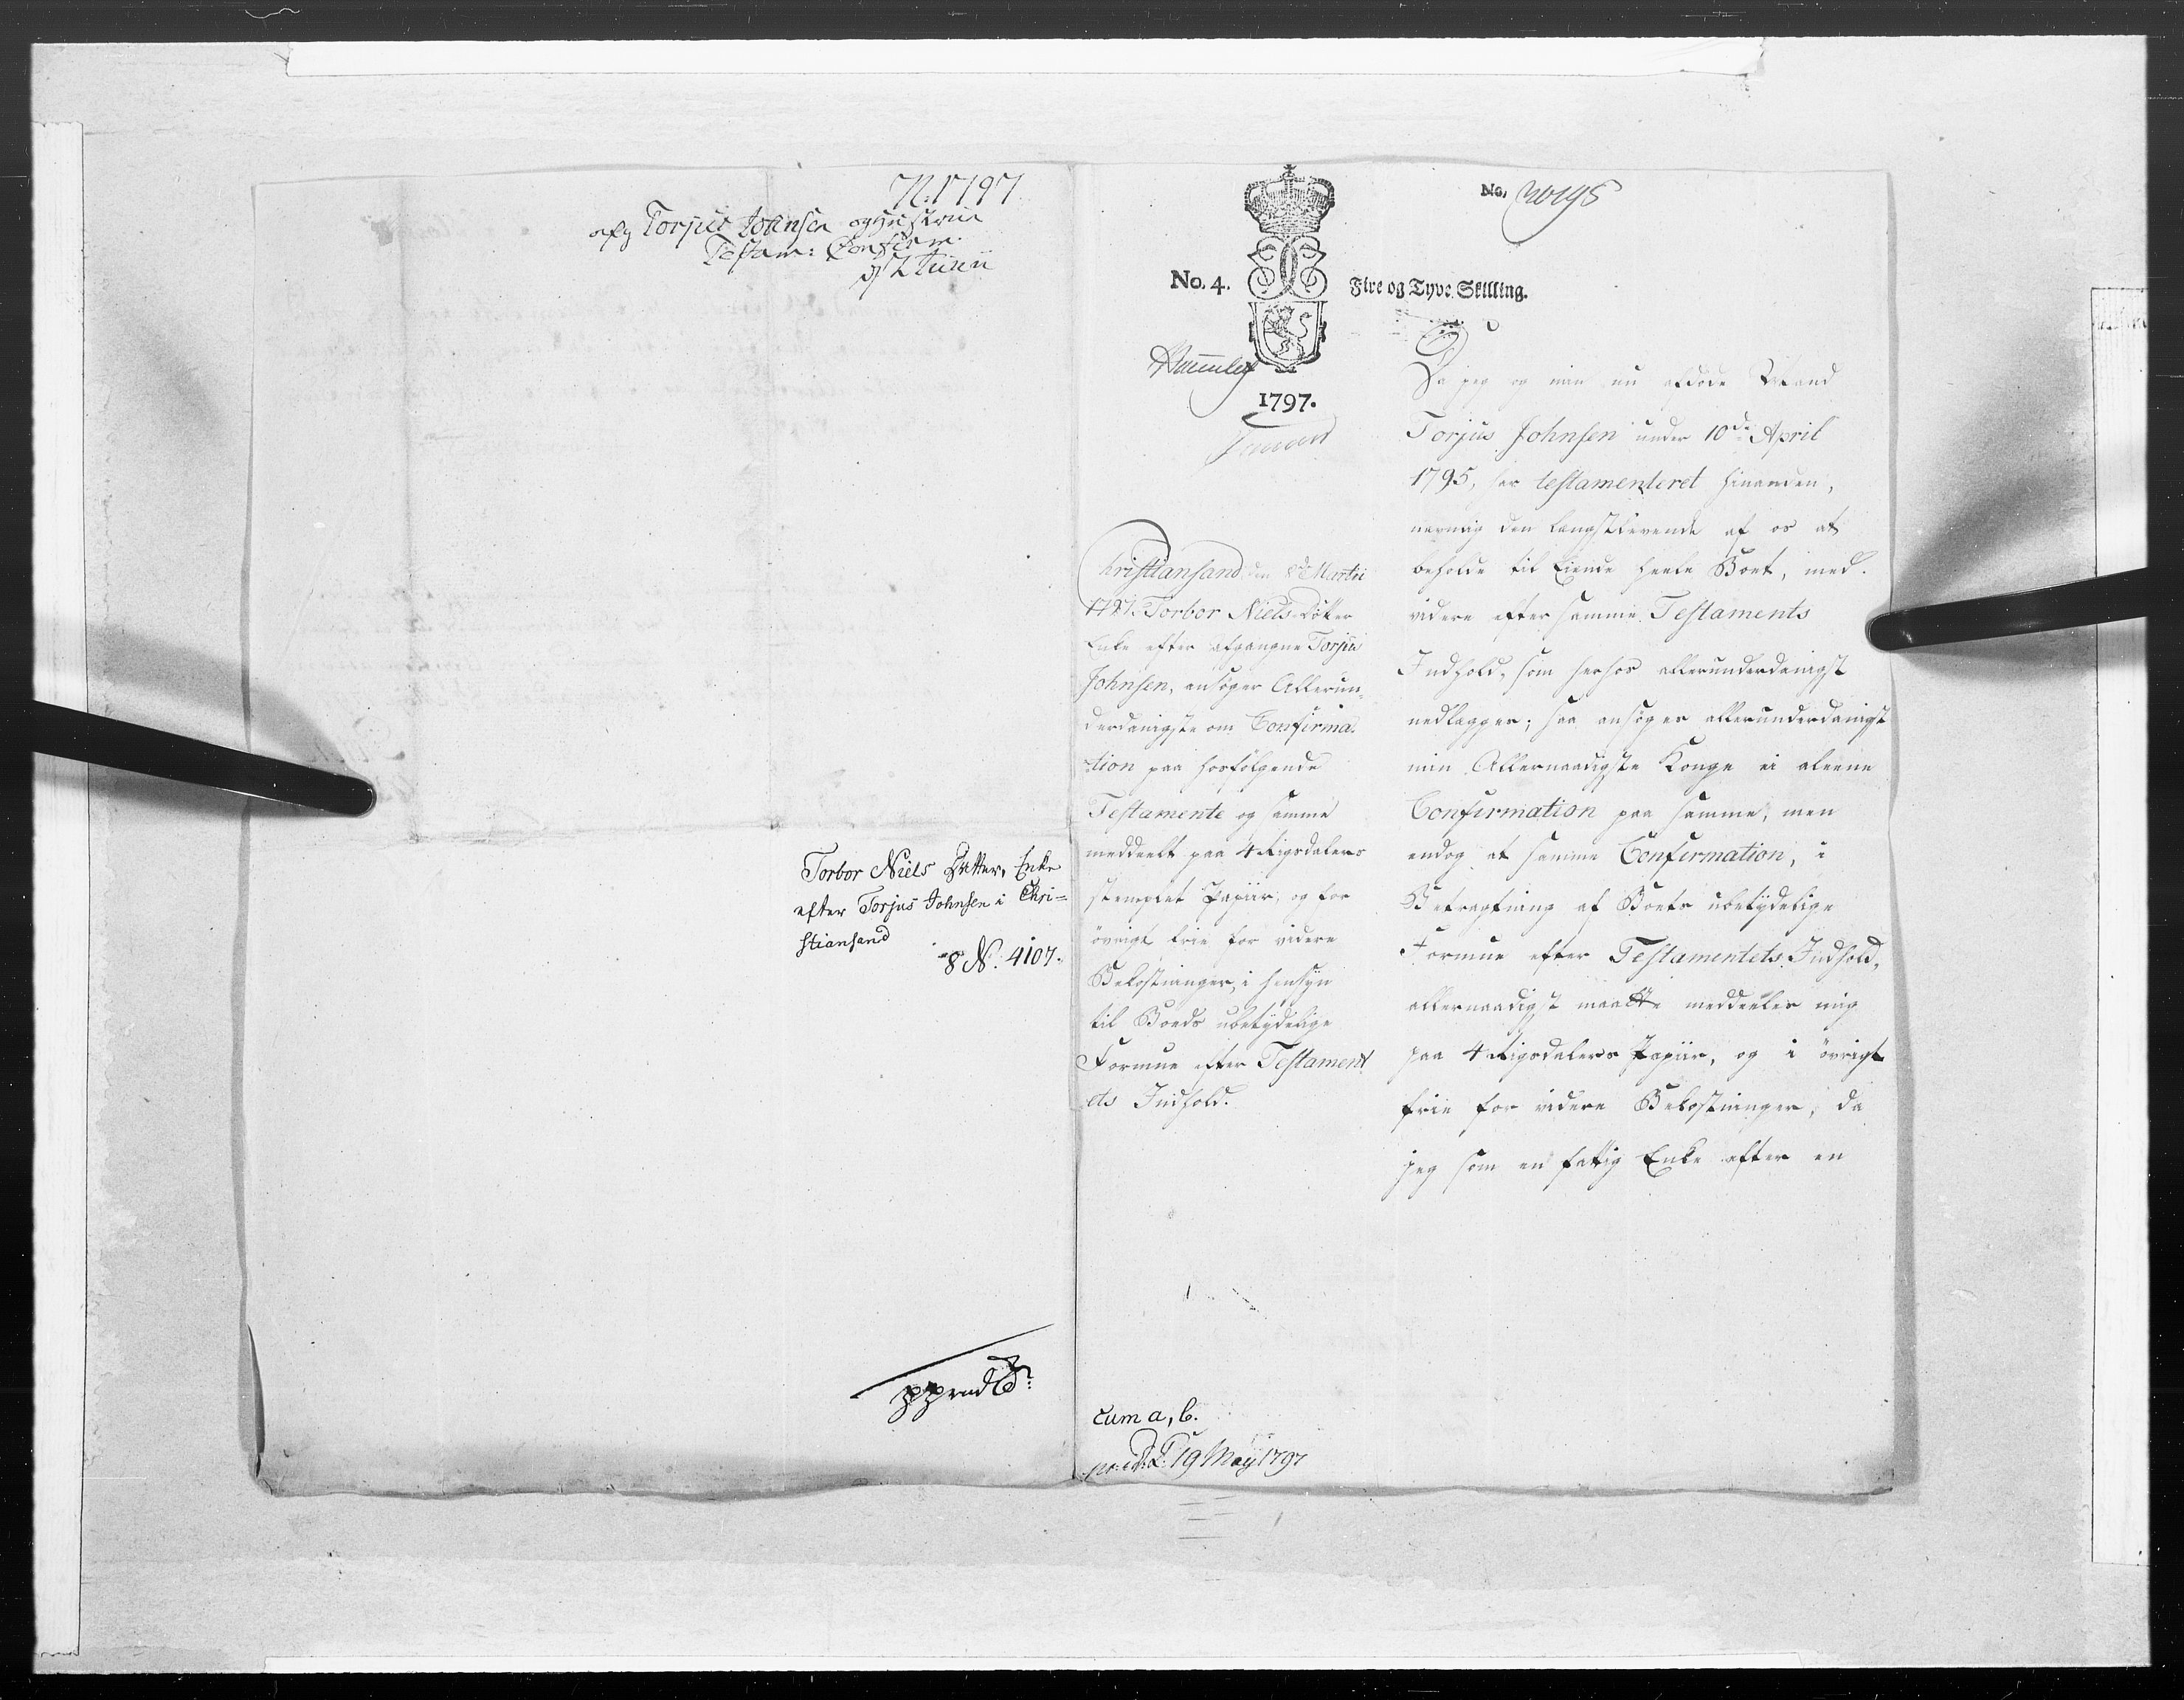 N: 1797
afg Torjus Johnsen og Hustrue
Testam: Confirm.
d/ 2 Junii
Torbor Niels Datter, Enke
efter Torjus Johnsen i Chri=
stiansand
8 N. 4107.
No.
No. 4.
Fire og Tyve Skilling.
1797.
Christiansand den 8de Martii
1797. Torbor Niels Datter
Enke efter afgangne Torjus
Johnsen, ansøger Allerun=
derdanigste om Confirma=
tion paa hosfølgende
Testamente og samme
meddeelt paa 4 Rigsdalers
stemplet Papiir, og for
øvrigt frie for videre
Bekostninger, i Hensyn
til Boeds ubetydelige
Formue efter Testament
ets Indhold.
Cum a, b.
19 May 1797
Da jeg og min nu afdøde Mand
Torjus Johnsen under 10de April
1795, har testamenteret hinanden,
nemlig den længstlevende af os at
beholde til Eiende heele Boet, med
videre efter samme Testaments
Indhold, som herhos allerunderdanigst
nedlægges; saa ansøger allerunderdanigst
min Allernaadigste Konge ei aleene
Confirmation paa samme, men
endog at samme Confirmation, i
Betragtning af Boets ubetydelige
Formue efter Testamentets Indhold,
allernaadigst maatte meddeeles mig
paa 4 Rigsdalers Papiir, og i øvrigt
frie for videre Bekostninger, da
jeg som en fattig Enke efter en